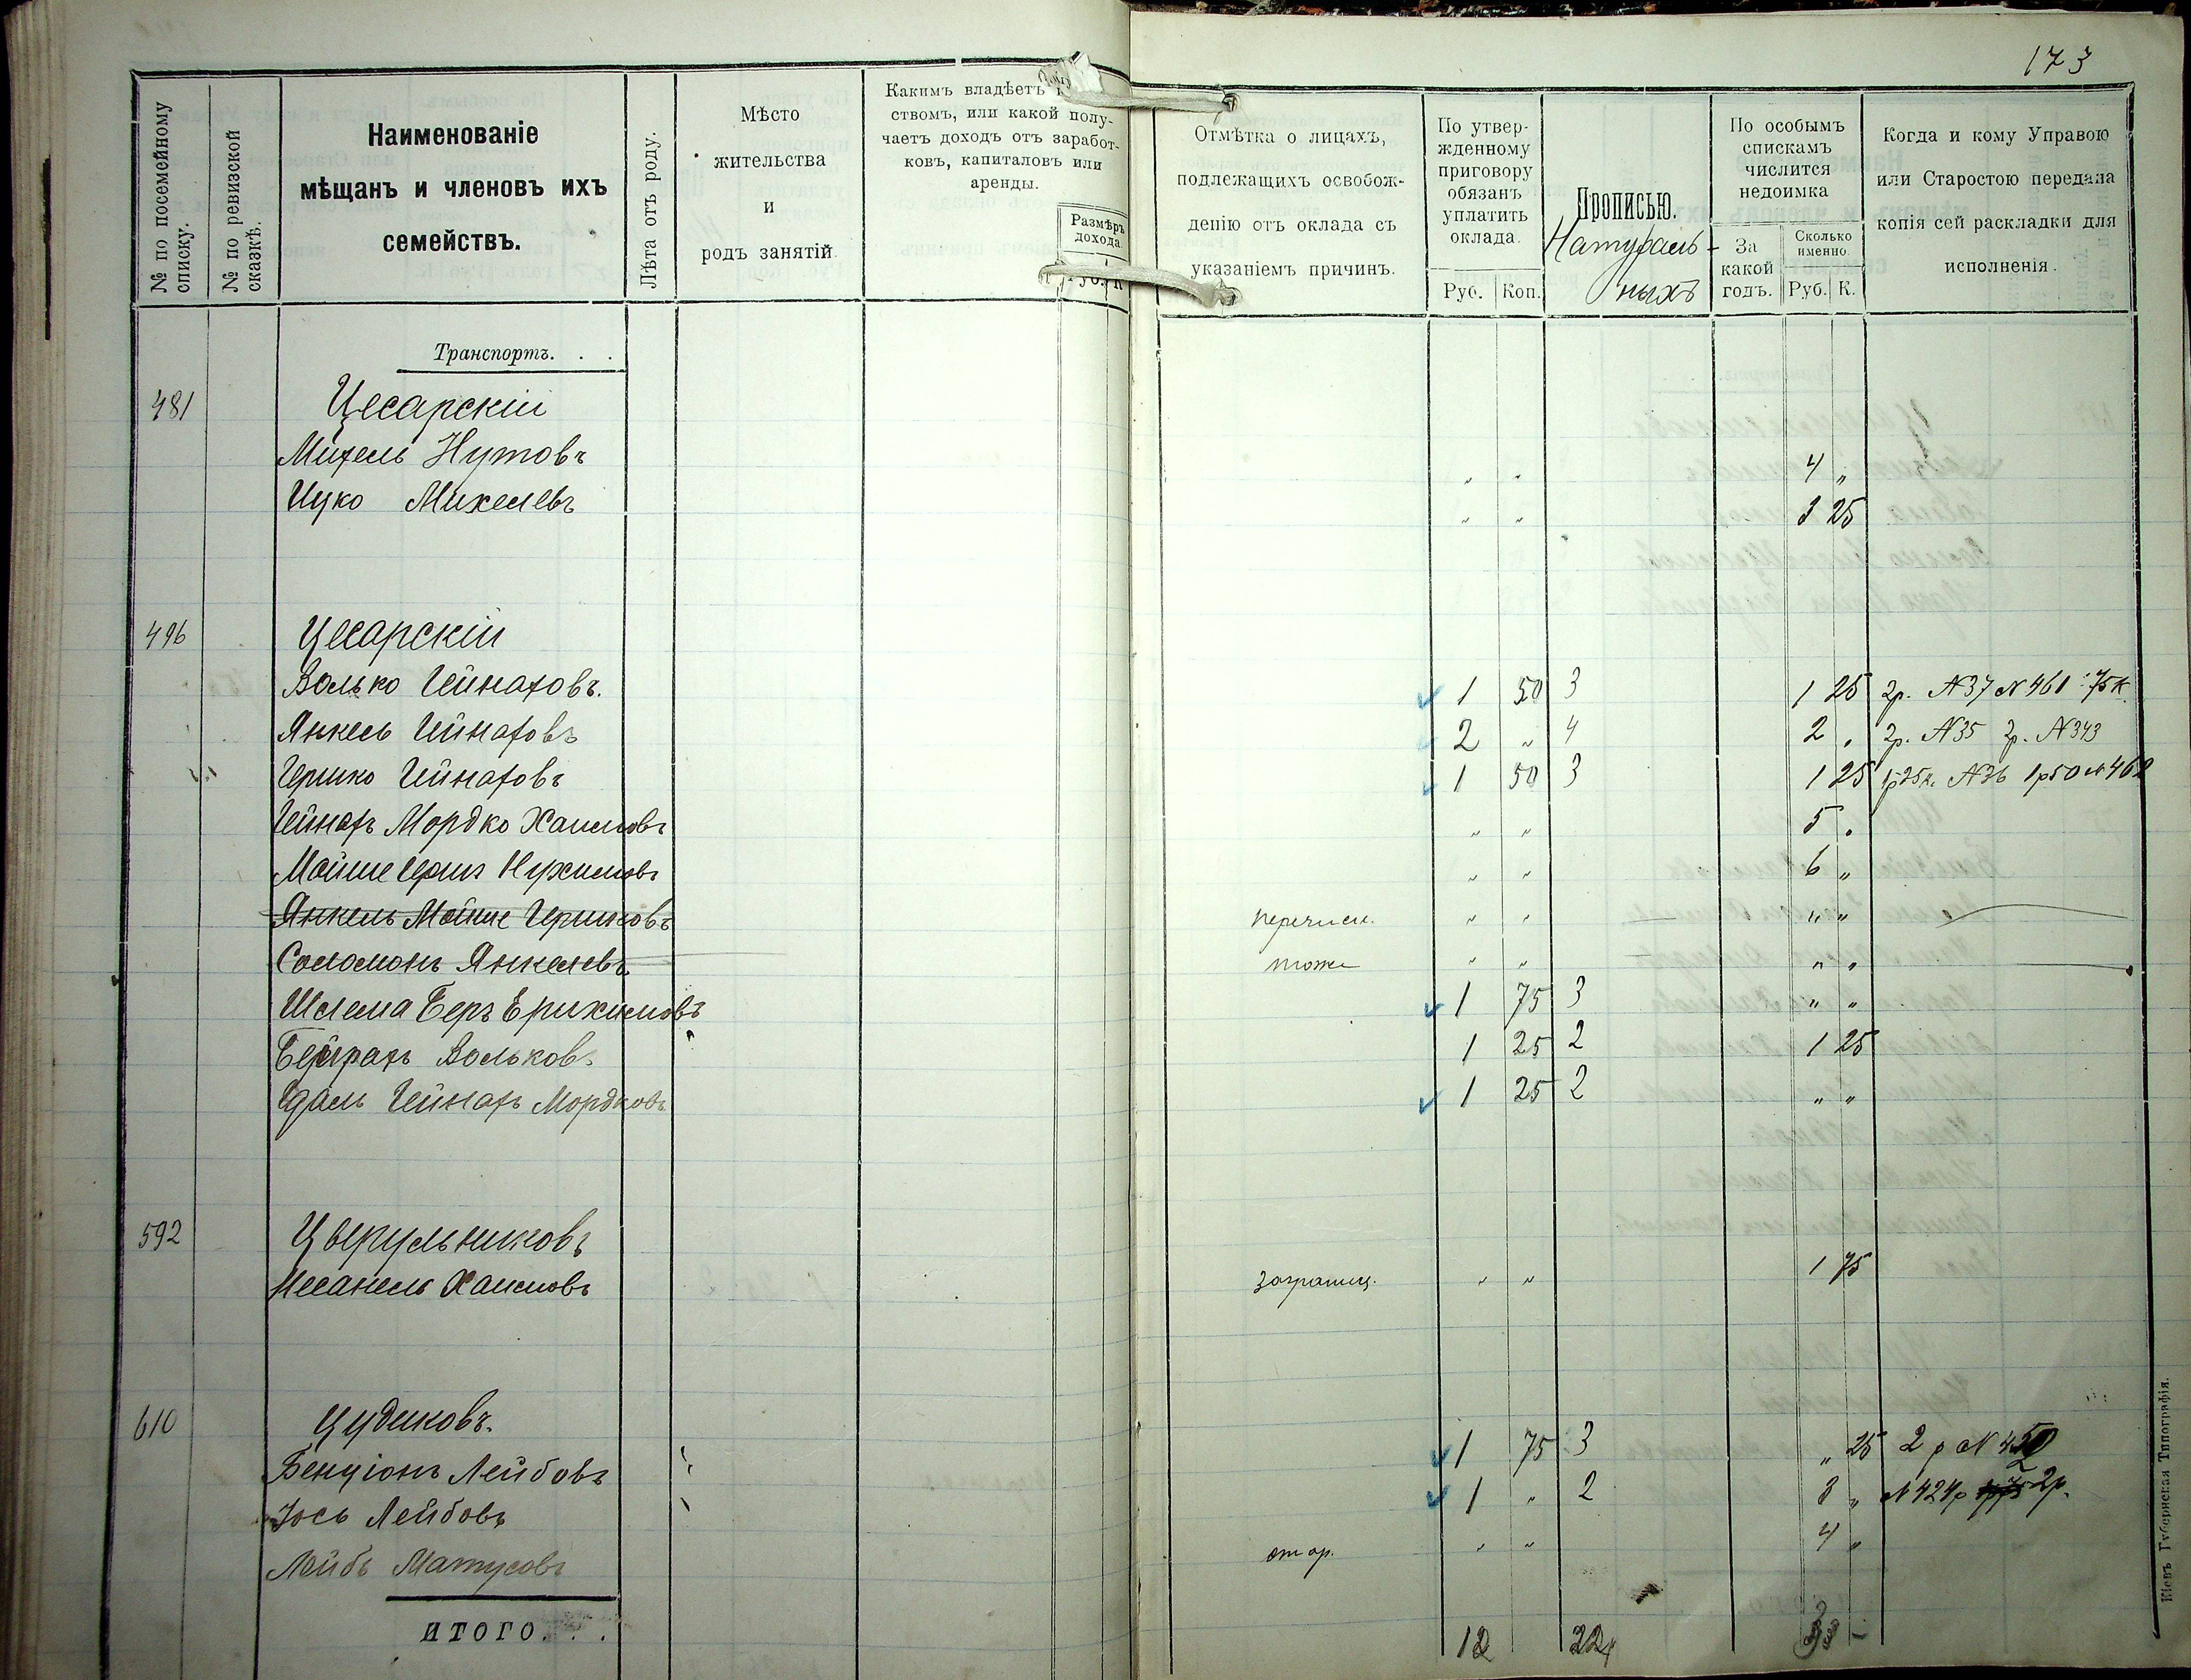 173
№ по посемейному списку.
№ по ревизской сказкѣ.
Наименованіе
мѣщанъ и членовъ ихъ
семействъ.
Лѣта отъ роду.
Мѣсто
жительства
и
родъ занятій
Какимъ владѣетъ
ствомъ, или какой полу-
чаетъ доходъ отъ заработ-
ковъ, капиталовъ или
аренды.
Размѣръ
дохода
Отмѣтка о лицахъ,
подлежащихъ освобож-
денію отъ оклада съ
указаніемъ причинъ.
По утвер-
жденному
приговору
обязанъ
уплатить
оклада.
Руб. Коп.
Прописью.
Натураль-
ныхъ
По особымъ
спискамъ
числится
недоимка
За
какой
годъ.
Сколько
именно.
Руб. К.
Когда и кому Управою
или Старостою передана
копія сей раскладки для
исполненія.
Транспортъ. . .
481 Цесарскій
Михель Нутовъ " " 4 "
Ицко Михелевъ " " 3 25
496 Цесарскій
Волько Чейнаховъ. 1 50 3 1 25 2р. N37 N461 75к
Янкель Чейнаховъ 2 " 4 2 " 2р. N35 2р. N343
Гершко Чейнаховъ 1 50 3 1 25 1р25к. N36 1р50 N462
Чейнахъ Мордко Хаимовъ " " 5 "
Мойше Гершъ Нухимовъ " " 6 "
Янкель Мойше Гершковъ перечисл. " " " "
Соломонъ Янкелевъ тоже " " " "
Шлема Беръ Ерихимовъ 1 75 3 " "
Вольковъ 1 25 2 1 25
Чейнахъ Мордковъ 1 25 2 " "
592 Цырульниковъ
Хаимовъ заграниц. " " 1 75
610 Цудиковъ.
Бенціонъ Лейбовъ 1 75 3 " 25 2 р N 450
Іось Лейбовъ 1 " 2 8 " N 424р 2р.
Лейбъ Матусовъ " " 4 "
ИТОГО. . . 12 22
Кіевъ Губернская Типографія.